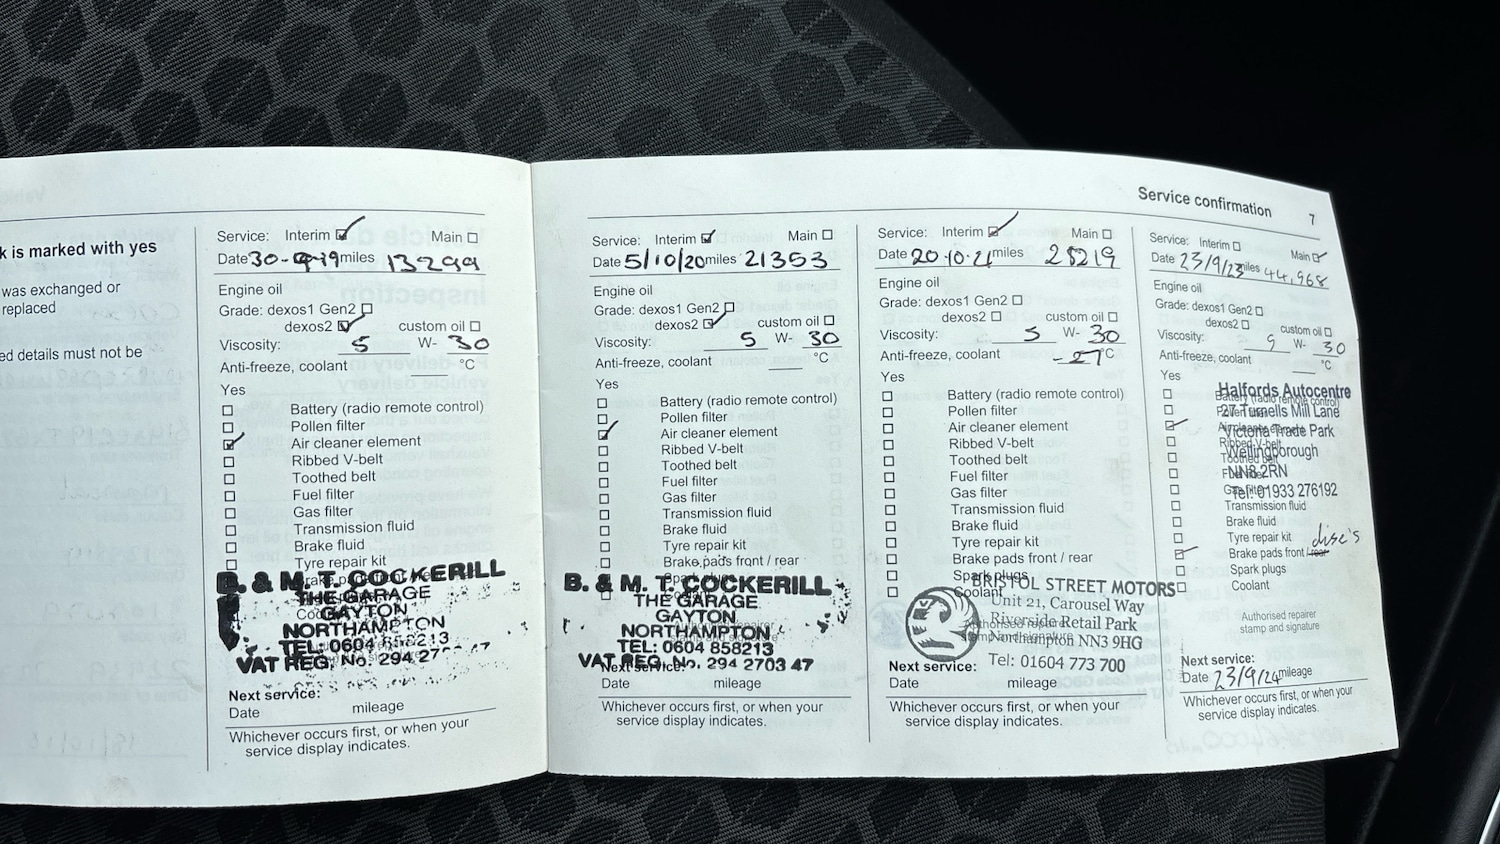 Service confirmation 7
k is marked with yes
was exchanged or
replaced
ed details must not be
Service: Interim Main
Date 30-09-19 miles 13299
Engine oil
Grade: dexos1 Gen2
dexos2 custom oil
Viscosity: 5 W- 30
Anti-freeze, coolant °C
Yes
Battery (radio remote control)
Pollen filter
Air cleaner element
Ribbed V-belt
Toothed belt
Fuel filter
Gas filter
Transmission fluid
Brake fluid
Tyre repair kit
B. & M. T. COCKERILL
THE GARAGE
GAYTON
NORTHAMPTON
TEL: 0604 858213
VAT REG. No. 294 27
Next service:
Date mileage
Whichever occurs first, or when your
service display indicates.
Service: Interim Main
Date 5/10/20 miles 21353
Engine oil
Grade: dexos1 Gen2
dexos2 custom oil
Viscosity: 5 W- 30
Anti-freeze, coolant °C
Yes
Battery (radio remote control)
Pollen filter
Air cleaner element
Ribbed V-belt
Toothed belt
Fuel filter
Gas filter
Transmission fluid
Brake fluid
Tyre repair kit
Brake pads front / rear
Spark plugs
B. & M. T. COCKERILL
THE GARAGE
GAYTON
NORTHAMPTON
TEL: 0604 858213
VAT REG. No. 294 2703 47
Next service:
Date mileage
Whichever occurs first, or when your
service display indicates.
Service: Interim Main
Date 20.10.21 miles 28219
Engine oil
Grade: dexos1 Gen2
dexos2 custom oil
Viscosity: 5 W- 30
Anti-freeze, coolant -27°C
Yes
Battery (radio remote control)
Pollen filter
Air cleaner element
Ribbed V-belt
Toothed belt
Fuel filter
Gas filter
Transmission fluid
Brake fluid
Tyre repair kit
Brake pads front / rear
Spark plugs
Coolant
BRISTOL STREET MOTORS
Unit 21, Carousel Way
Riverside Retail Park
Northampton NN3 9HG
Tel: 01604 773 700
Authorised repairer
stamp and signature
Next service:
Date mileage
Whichever occurs first, or when your
service display indicates.
Service: Interim Main
Date 23/9/23 miles 44,968
Engine oil
Grade: dexos1 Gen2
dexos2 custom oil
Viscosity: 5 W- 30
Anti-freeze, coolant °C
Yes
Halfords Autocentre
27 Turnells Mill Lane
Victoria Trade Park
Wellingborough
NN8 2RN
Tel: 01933 276192
Battery (radio remote control)
Ribbed V-belt
Toothed belt
Gas filter
Transmission fluid
Brake fluid
Tyre repair kit
Brake pads front / rear disc's
Spark plugs
Coolant
Authorised repairer
stamp and signature
Next service:
Date 23/9/24 mileage
Whichever occurs first, or when your
service display indicates.